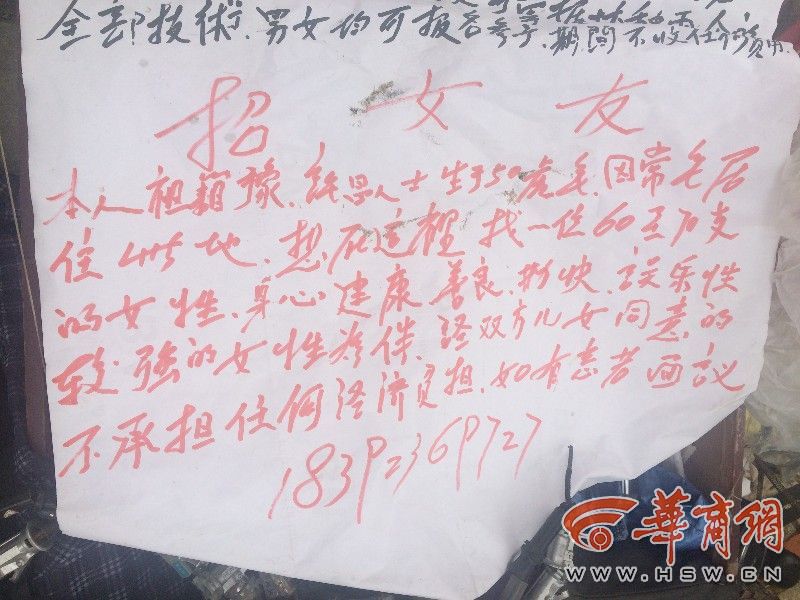 全部技術.男女均可报名参学.期間不收任何费用.
招女友
本人祖籍豫.人士生于50虎年.因常年居
住此地.想在这裡找一位60至70支
的女性.身心建康善良.爽快.娱乐性
较强的女性为伴.经双方儿女同意的
不承担任何经济负担.如有志者面议
18392369727
華商網
WWW.HSW.CN